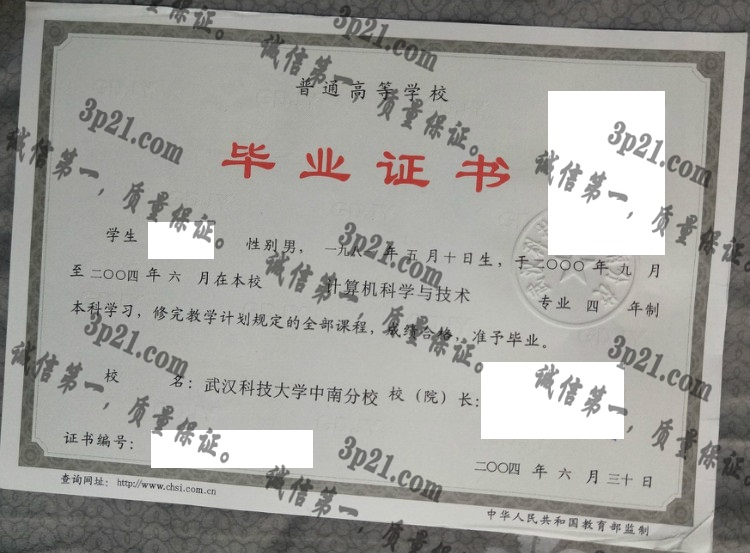 普通高等学校
毕业证书
学生 性别男，一九八 年五月十日生，于二〇〇〇年九月
至二〇〇四年六月在本校 计算机科学与技术 专业 四 年制
本科学习，修完教学计划规定的全部课程，成绩合格，准予毕业。
校 名：武汉科技大学中南分校 校（院）长：
证书编号：
二〇〇四年六月三十日
查询网址：http://www.chsi.com.cn
中华人民共和国教育部监制
3p21.com
诚信第一，质量保证。
3p21.com
诚信第一，质量保证。
3p21.com
诚信第一，质量保证。
3p21.com
诚信第一，质量保证。
3p21.com
诚信第一，质量保证。
3p21.com
诚信第一，质量保证。
3p21.com
诚信第一，质量保证。